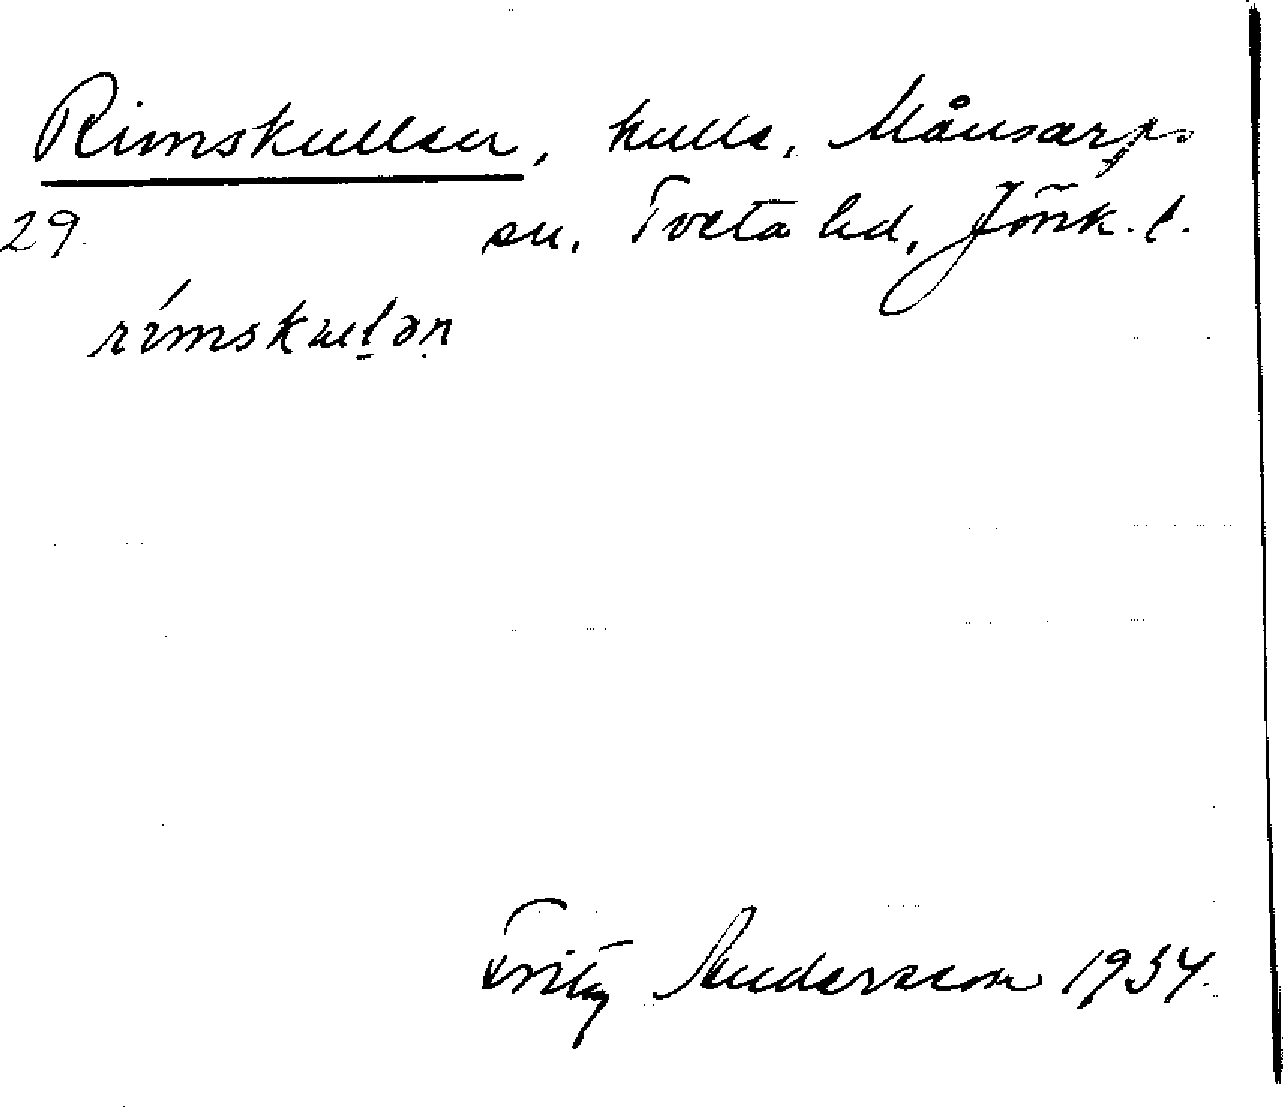 Rimskullen, kulle, Månsarps
29 sn. Tveta hd, Jönk. l.
rímskulən
Fritz Andersson 1934.